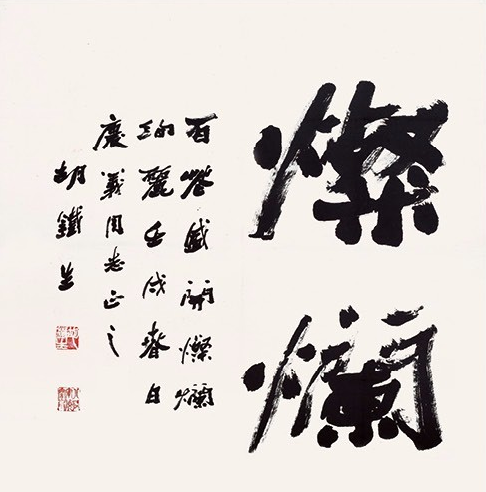 燦爛
百花盛開燦爛
絢麗壬戌春日
慶義同志正之
胡鐵生